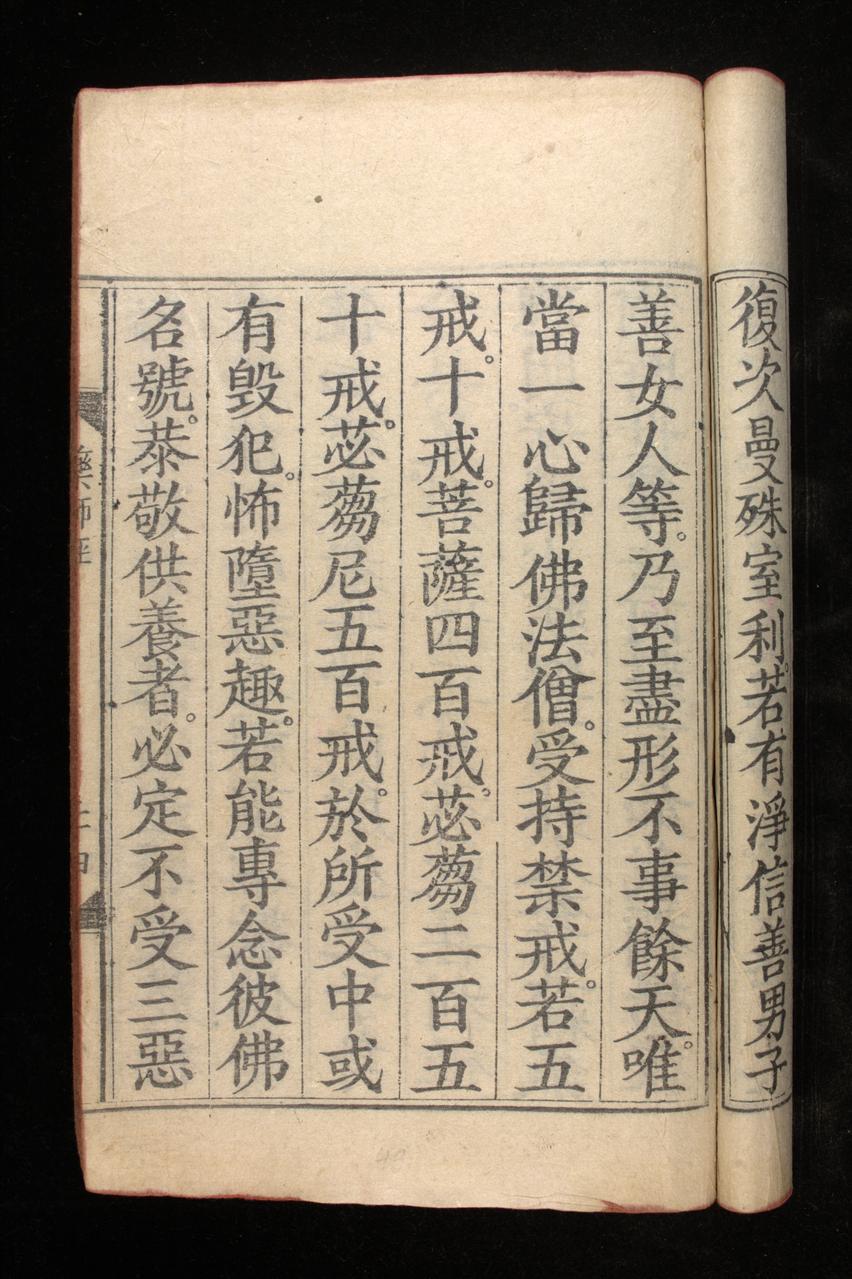 復次曼殊室利。若有淨信善男子
善女人等。乃至盡形不事餘天。唯
當一心歸佛法僧。受持禁戒。若五
戒。十戒。菩薩四百戒。苾蒭二百五
十戒。苾蒭尼五百戒。於所受中或
有毀犯。怖墮惡趣。若能專念彼佛
名號。恭敬供養者。必定不受三惡
藥師經